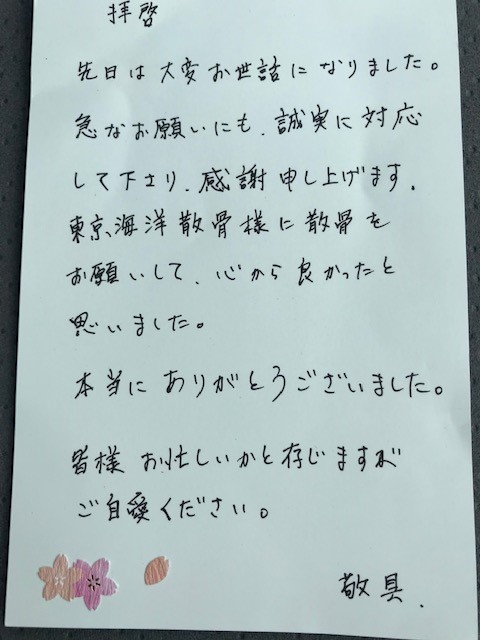 拝啓
先日は大変お世話になりました。
急なお願いにも、誠実に対応
して下さり、感謝申し上げます。
東京海洋散骨様に散骨を
お願いして、心から良かったと
思いました。
本当にありがとうございました。
皆様お忙しいかと存じますが
ご自愛ください。
敬具.